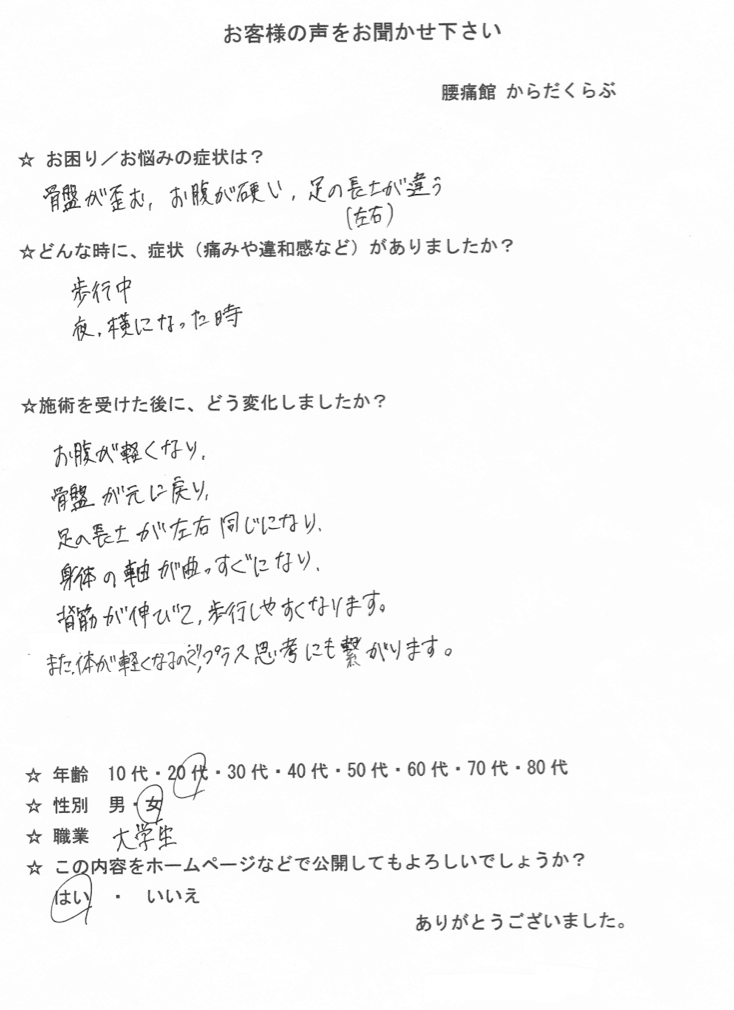 お客様の声をお聞かせ下さい
腰痛館 からだくらぶ
☆ お困り／お悩みの症状は？
骨盤が歪む, お腹が硬い, 足の長さが違う
(左右)
☆どんな時に、症状（痛みや違和感など）がありましたか？
歩行中
夜, 横になった時
☆施術を受けた後に、どう変化しましたか？
お腹が軽くなり,
骨盤が元に戻り,
足の長さが左右同じになり,
身体の軸が真っすぐになり,
背筋が伸びて, 歩行しやすくなります。
また,体が軽くなるので,プラス思考にも繋がります。
☆ 年齢 10代・20代・30代・40代・50代・60代・70代・80代
☆ 性別 男・女
☆ 職業 大学生
☆ この内容をホームページなどで公開してもよろしいでしょうか？
はい ・ いいえ
ありがとうございました。